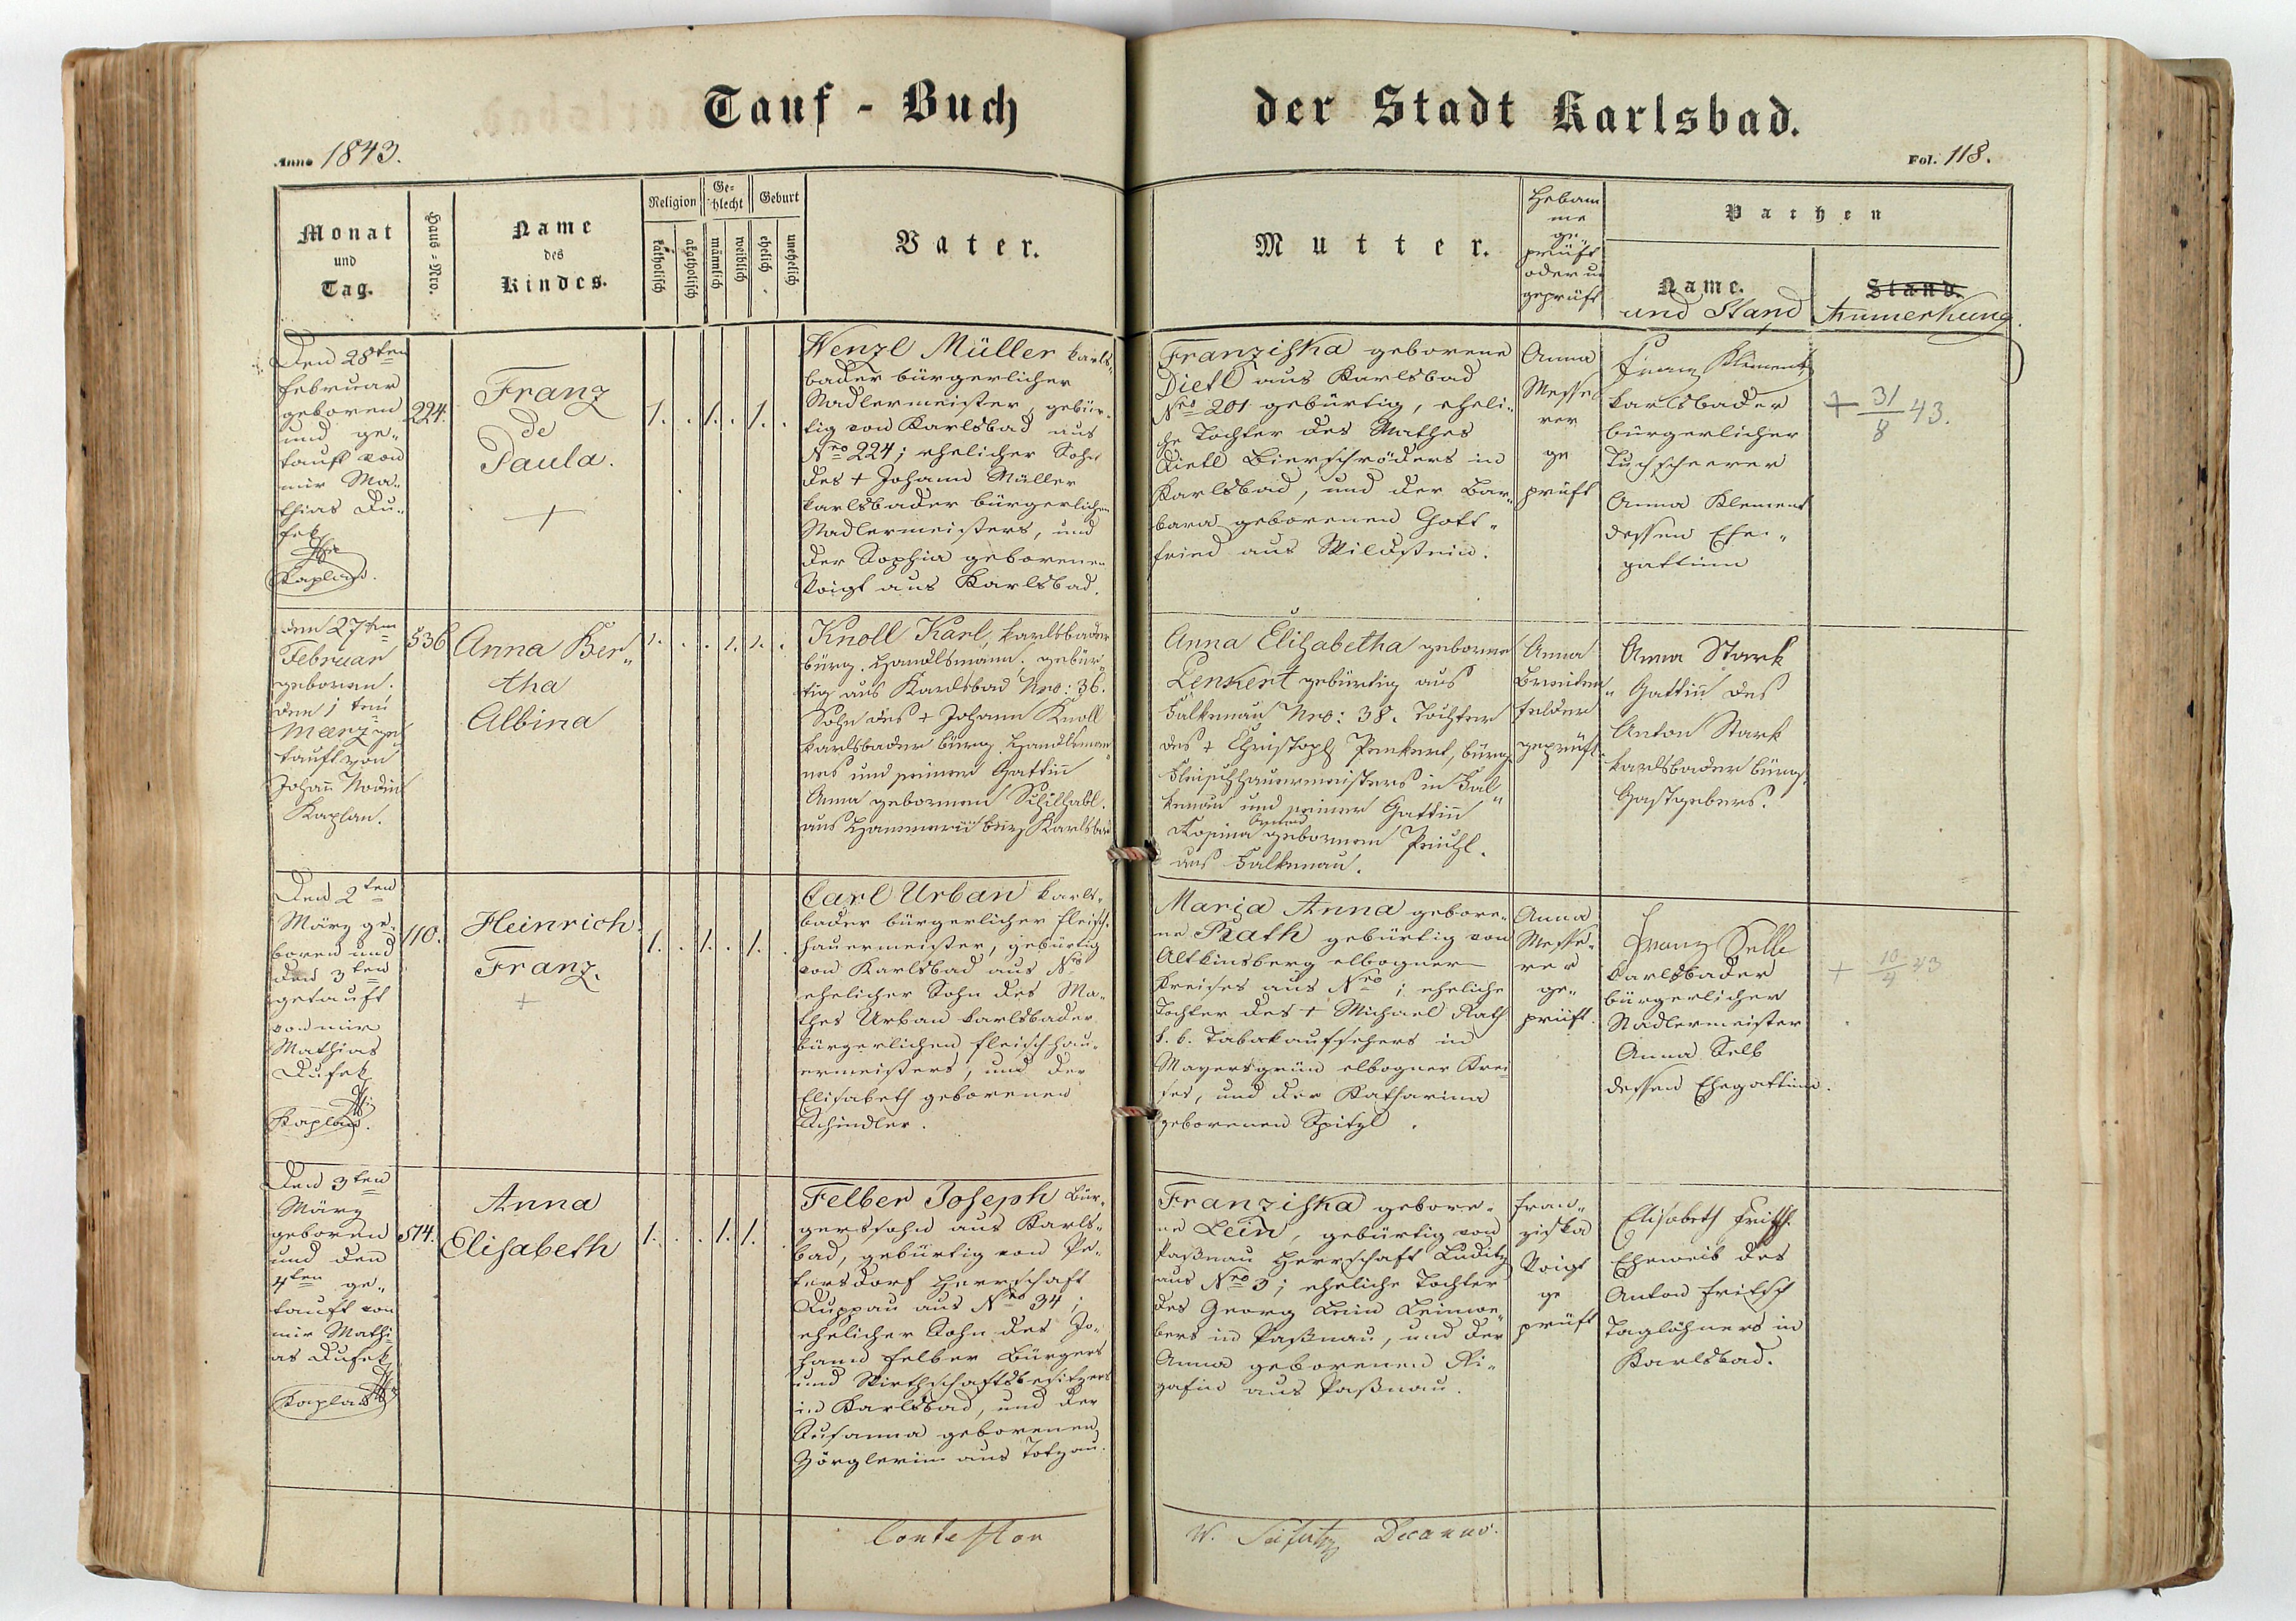 Tauf - Buch
der Stadt Karlsbad.
Anno 1843.
Fol. 118.
Monat
und
Tag.
Haus-Nro.
Name
des
Kindes.
Religion
katholisch
akatholisch
Ge-
schlecht
männlich
weiblich
Geburt
ehelich
unehelich
Vater.
Mutter.
Hebam
me
ge-
prüft
oder un
geprüft
Pathen
Name.
und Stand
Stand.
Anmerkung.
Den 28ten
Februar
geboren
und ge-
tauft von
mir Ma-
thias Du-
fek
Kaplan.
224.
Franz
de
Paula.
+
1. . 1. . 1. .
Wenzl Müller karls-
bader bürgerlicher
Nadlermeister, gebür-
tig von Karlsbad aus
Nro 224; ehelicher Sohn
des + Johann Müller
karlsbader bürgerlichen
Nadlermeisters, und
der Sophia geborenen
Voigt aus Karlsbad.
Franziska geborene
Dietl aus Karlsbad
Nro 201 gebürtig, eheli-
che Tochter des Mathes
Dietl Bierschröders in
Karlsbad, und der Bar-
bara geborenen Gott-
fried aus Wildstein.
Anna
Messe
rer
ge
prüft
Franz Klement
karlsbader
bürgerlicher
Tuchscheerer
Anna Klement
dessen Ehe-
gattinn
+ 31/8 43.
den 27ten
Februar
geboren.
den 1ten
Maerz ge-
tauft von
Johann Modin
Kaplan.
536
Anna Ber-
tha
Albina
1. . . 1. 1. .
Knoll Karl, karlsbader
bürg. Handlsmann. gebür-
tig aus Karlsbad Nro: 36.
Sohn des + Johann Knoll
karlsbader bürg. Handlsman-
nes und seiner Gattin
Anna gebornen Schilhabl.
aus Hammer bei Karlsbad
Anna Elisabetha geborne
Lenkert gebürtig aus
Falkenau Nro: 38. Tochter
des + Christoph Penkert, bürg
Fleischhauermeisters in Fal-
kenau und seiner Gattin
Rosina gebornen
aus Falkenau.
Anna
Breiten-
felder
geprüft.
Anna Stark
Gattin des
Anton Stark
karlsbader bürg.
Gastgebers.
Den 2ten
März ge-
boren und
den 3ten
getauft
von mir
Mathias
Dufek
Kaplan.
110.
Heinrich
Franz.
+
1. . 1. . 1. .
Carl Urban karls-
bader bürgerlicher Fleisch-
hauermeister, gebürtig
von Karlsbad aus Nro
ehelicher Sohn des Ma-
thes Urban karlsbader
bürgerlichen Fleischhau-
ermeisters, und der
Elisabeth geborenen
Schindler.
Maria Anna gebore-
ne Rath gebürtig von
Altkinsberg elbogner
Kreises aus Nro ; eheliche
Tochter des + Michael Rath
k. k. Tabakaufsehers in
Mayersgrün elbogner Krei
ses, und der Katharina
geborenen Spitzl.
Anna
Messe-
rer
ge-
prüft.
Franz Selb
karlsbader
bürgerlicher
Nadlermeister
Anna Selb
dessen Ehegattinn.
+ 10/4 43
Den 3ten
März
geboren
und den
4ten ge-
tauft von
mir Mathi
as Dufek
Kaplan
574.
Anna
Elisabeth
1. . . 1. 1. .
Felber Joseph Bür-
gerssohn aus Karls-
bad, gebürtig von Pe-
tersdorf Herrschaft
Duppau aus Nro 34;
ehelicher Sohn des Jo-
hann Felber Bürgers
und Wirthschaftsbesitzers
in Karlsbad, und der
Susanna geborenen
Zörglerin aus Totzau.
Franziska gebore-
ne Lein, gebürtig von
Paßnau Herrschaft Luditz
aus Nro 3; eheliche Tochter
des Georg Lein Leinwe-
bers in Paßnau, und der
Anna geborenen Ri-
gafin aus Paßnau.
Fran-
ziska
Voigt
ge
prüft
Elisabeth Fritsch
Eheweib des
Anton Fritsch
Taglöhners in
Karlsbad.
W. Decanus.